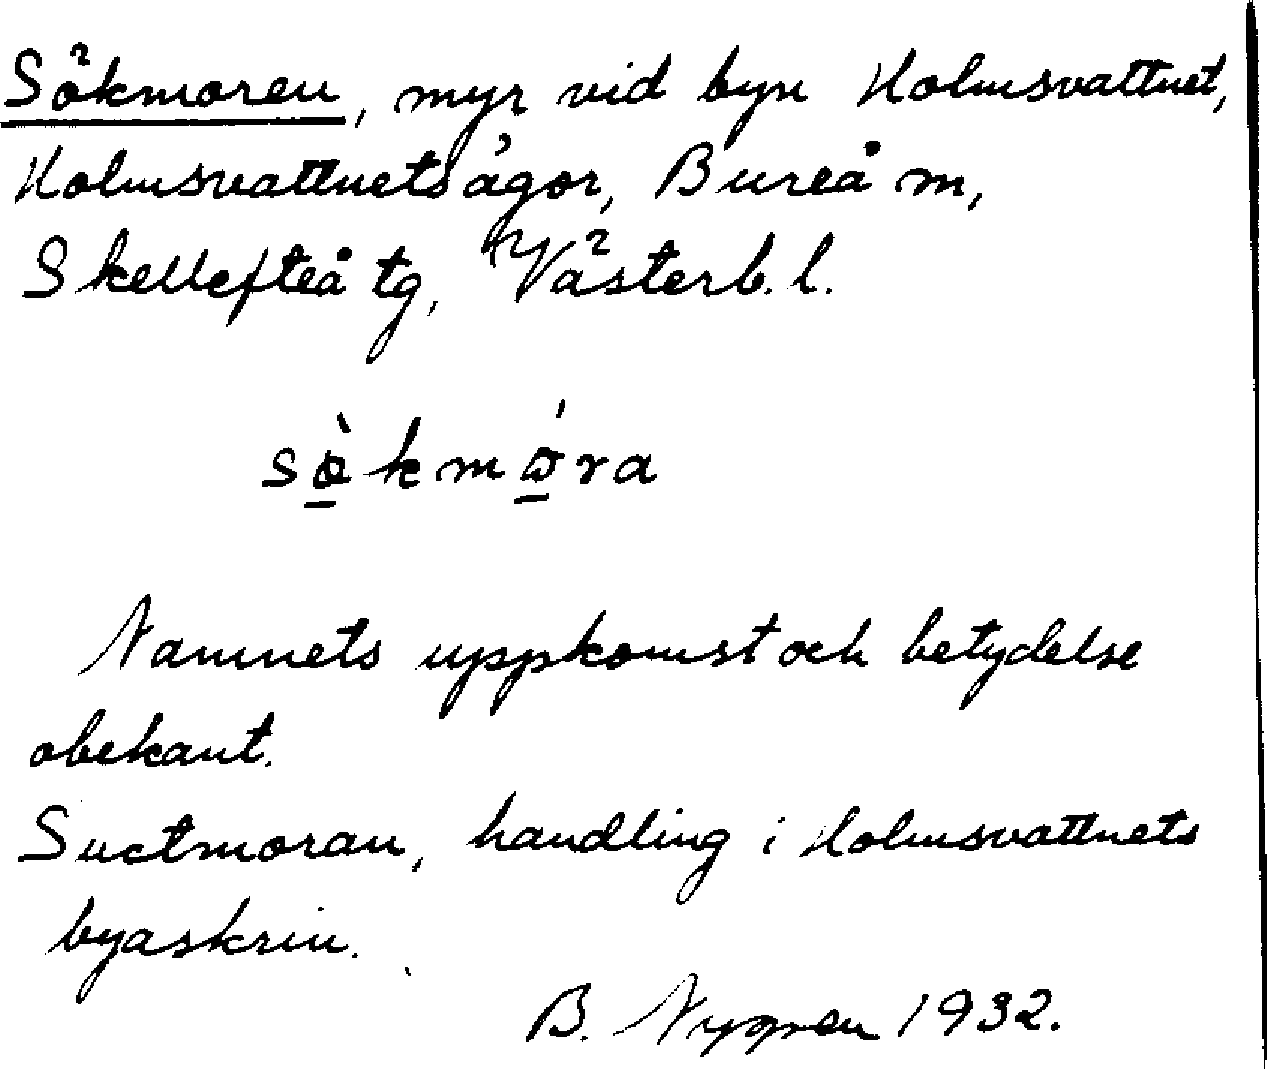 Sökmoren, myr vid byn Holmsvattnet,
Holmsvattnets ägor, Bureå m,
Skellefteå tg, Västerb. l.
sö̀kmǿra
Namnets uppkomst och betydelse
obekant.
Suctmoran, handling i Holmsvattnets
byaskrin.
B. Nygren 1932.